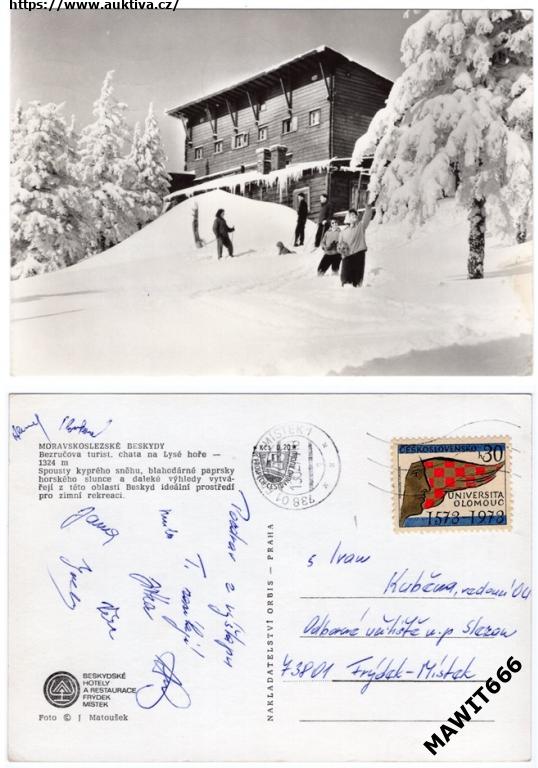 https://www.auktiva.cz/
MORAVSKOSLEZSKÉ BESKYDY
Bezručova turist. chata na Lysé hoře —
1324 m
Spousty kyprého sněhu, blahodárné paprsky
horského slunce a daleké výhledy vytvá-
řejí z této oblasti Beskyd ideální prostředí
pro zimní rekreaci.
MÍSTEK 1
738 01
ČESKOSLOVENSKO
30
UNIVERSITA
OLOMOUC
1573-1973
Pozdrav z výstupu
Jana
s. Ivan
Kuběna, vedoucí OU
Odborné učiliště n.p. Slezan
73801 Frýdek-Místek
NAKLADATELSTVÍ ORBIS — PRAHA
BESKYDSKÉ
HOTELY
A RESTAURACE
FRÝDEK
MÍSTEK
Foto © J Matoušek
MAWIT666